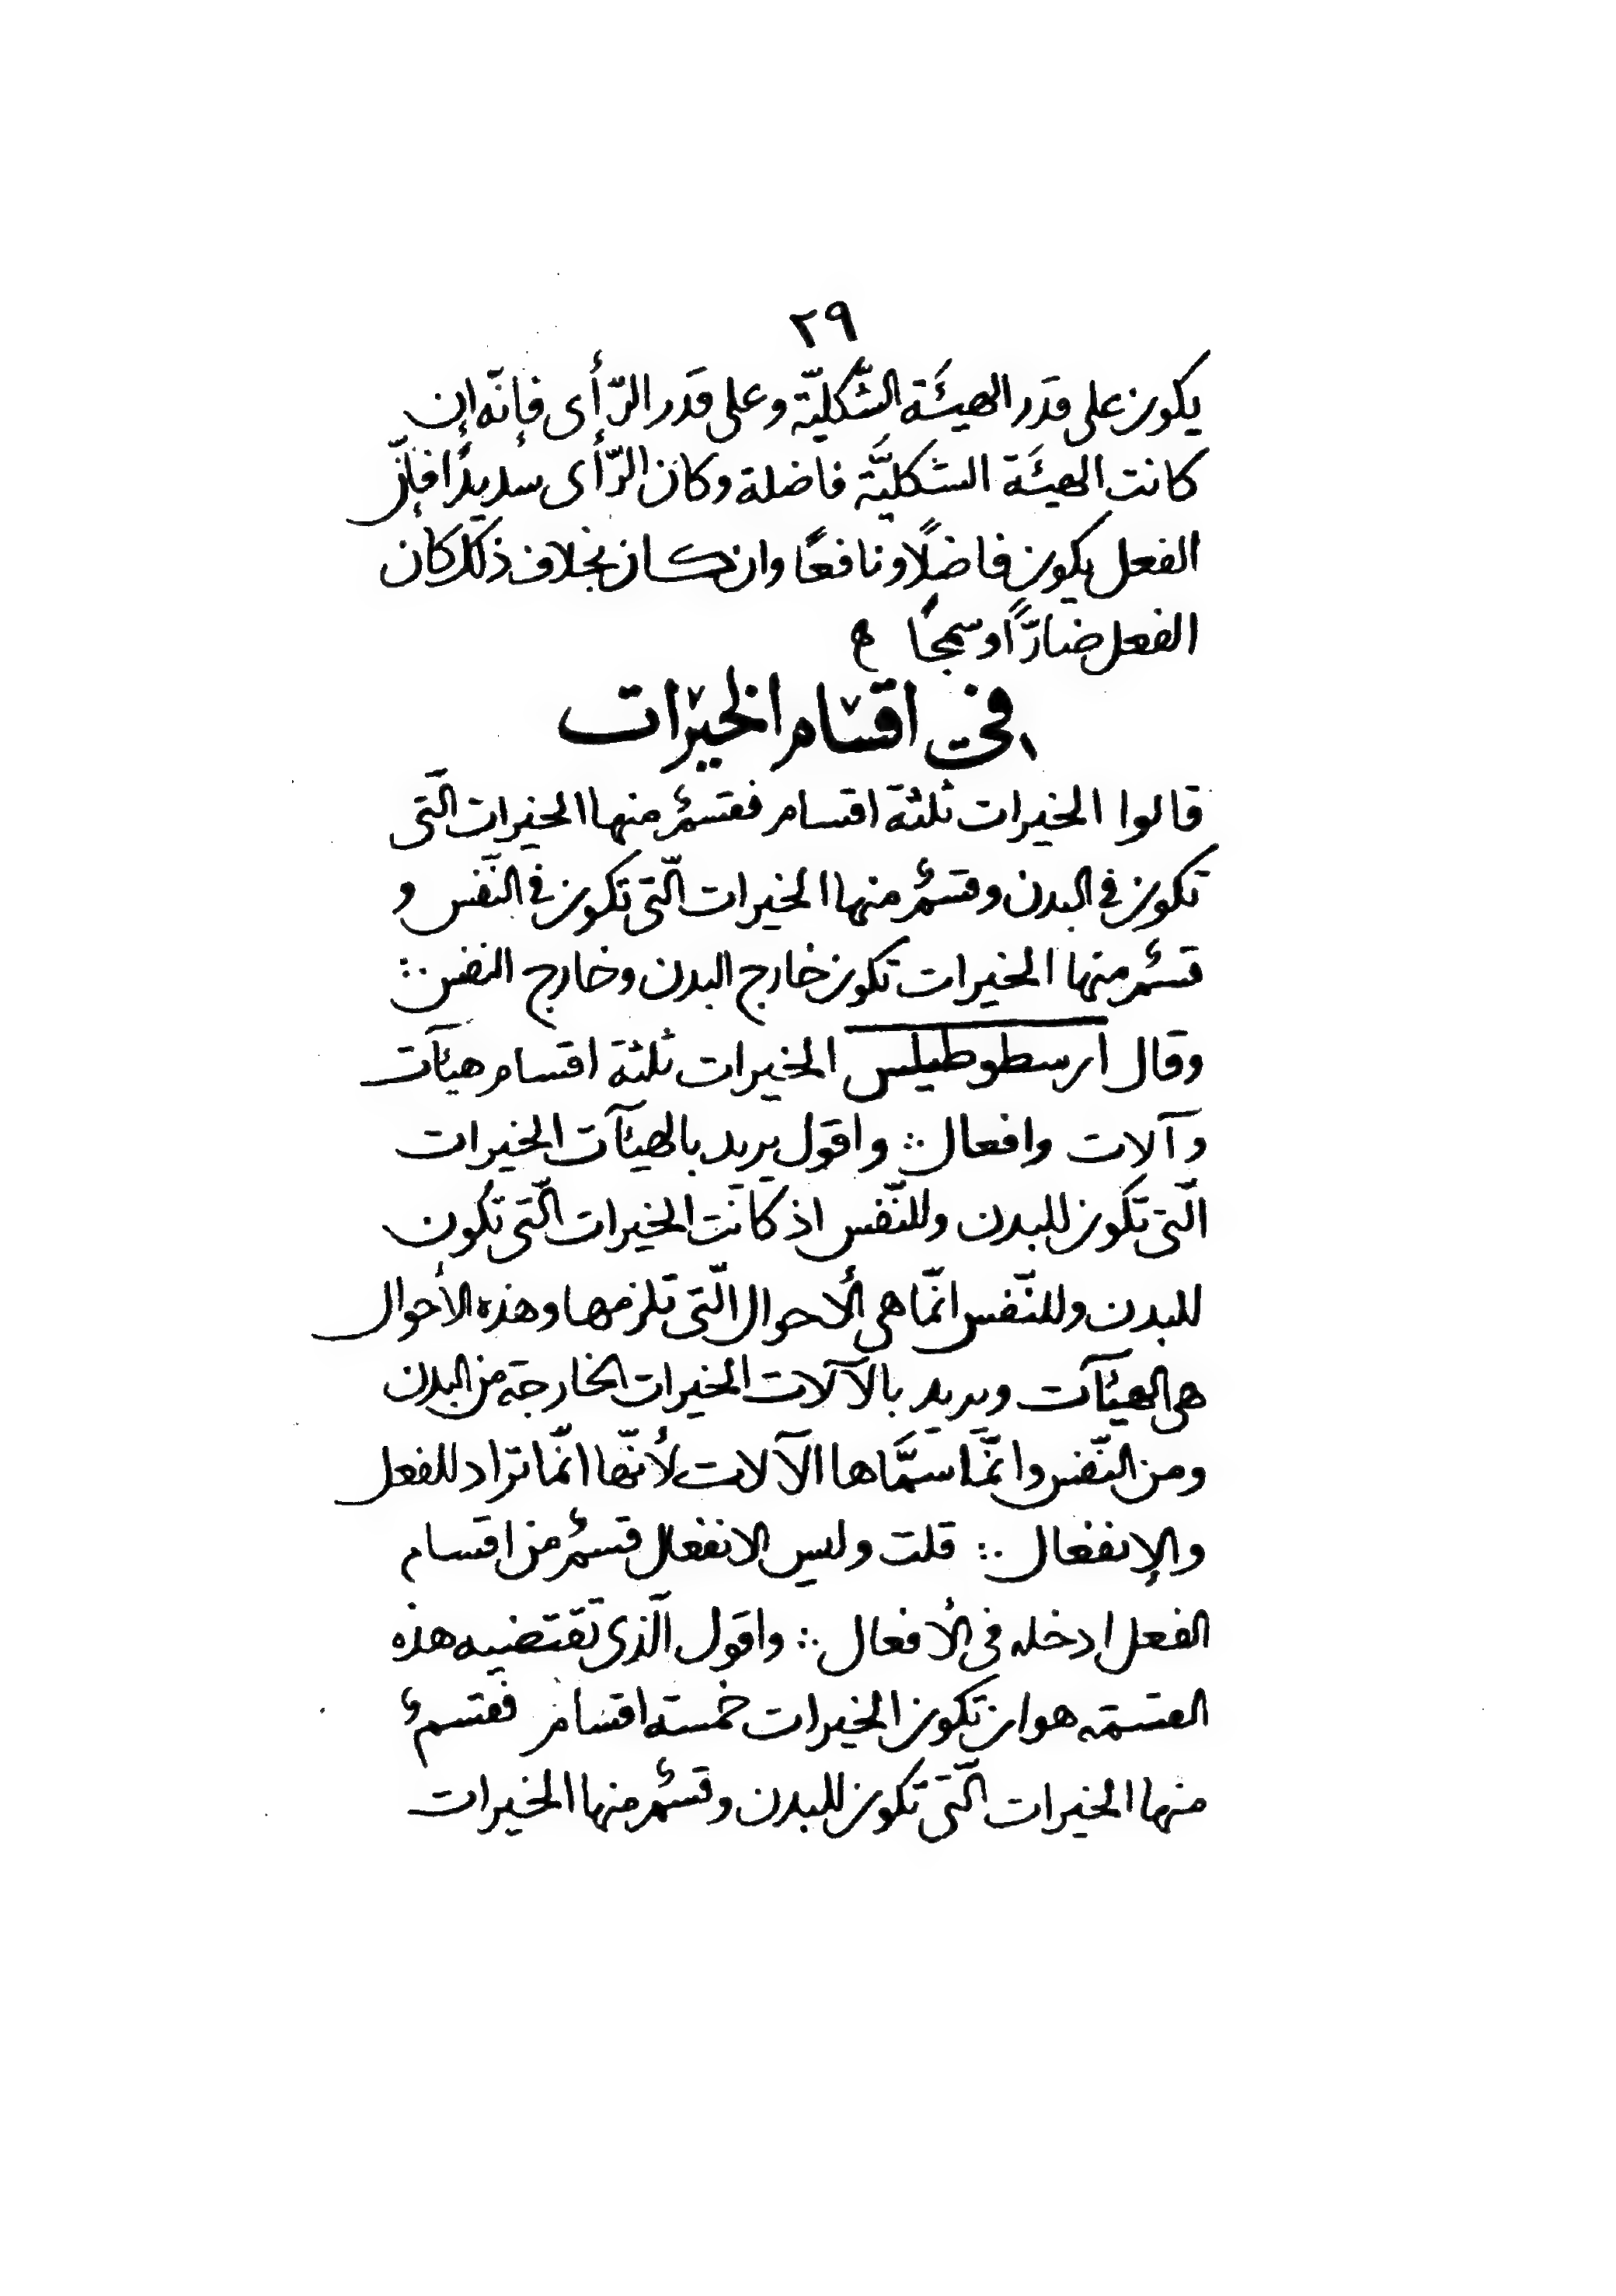 ٢٩
يكون على قدر الهيئة الشّكليّة وعلى قدر الرّأى فإنّه إن
كانت الهيئة الشكليّة فاضلة وكان الرّأى سديدًا فإنّ
الفعل يكون فاضلًا ونافعًا وان كان بخلاف ذلك كان
الفعل ضارًّا وسمجًا
فى اقسام الخيرات
قالوا الخيرات ثلثة اقسام فقسمٌ منها الخيرات الّتى
تكون فى البدن وقسمٌ منها الخيرات الّتى تكون فى النّفس و
قسمٌ منها الخيرات تكون خارج البدن وخارج النفس ∴
وقال ارسطوطيلس الخيرات ثلثة اقسام هيئآت
وآلات وافعال ∴ واقول يريد بالهيئآت الخيرات
الّتى تكون للبدن وللنّفس اذ كانت الخيرات الّتى تكون
للبدن وللنّفس انّما هى الأحوال الّتى تلزمها وهذه الأحوال
هى الهيئآت ويريد بالآلات الخيرات الخارجة من البدن
ومن النّفس وانّما سمّاها الآلات لأنّها انّما تراد للفعل
والإنفعال ∴ قلت وليس الانفعال قسمٌ من اقسام
الفعل ادخله فى الأفعال ∴ واقول الّذى تقتضيه هذه
القسمة هو ان تكون الخيرات خمسة اقسام فقسمٌ
منها الخيرات الّتى تكون للبدن وقسمٌ منها الخيرات